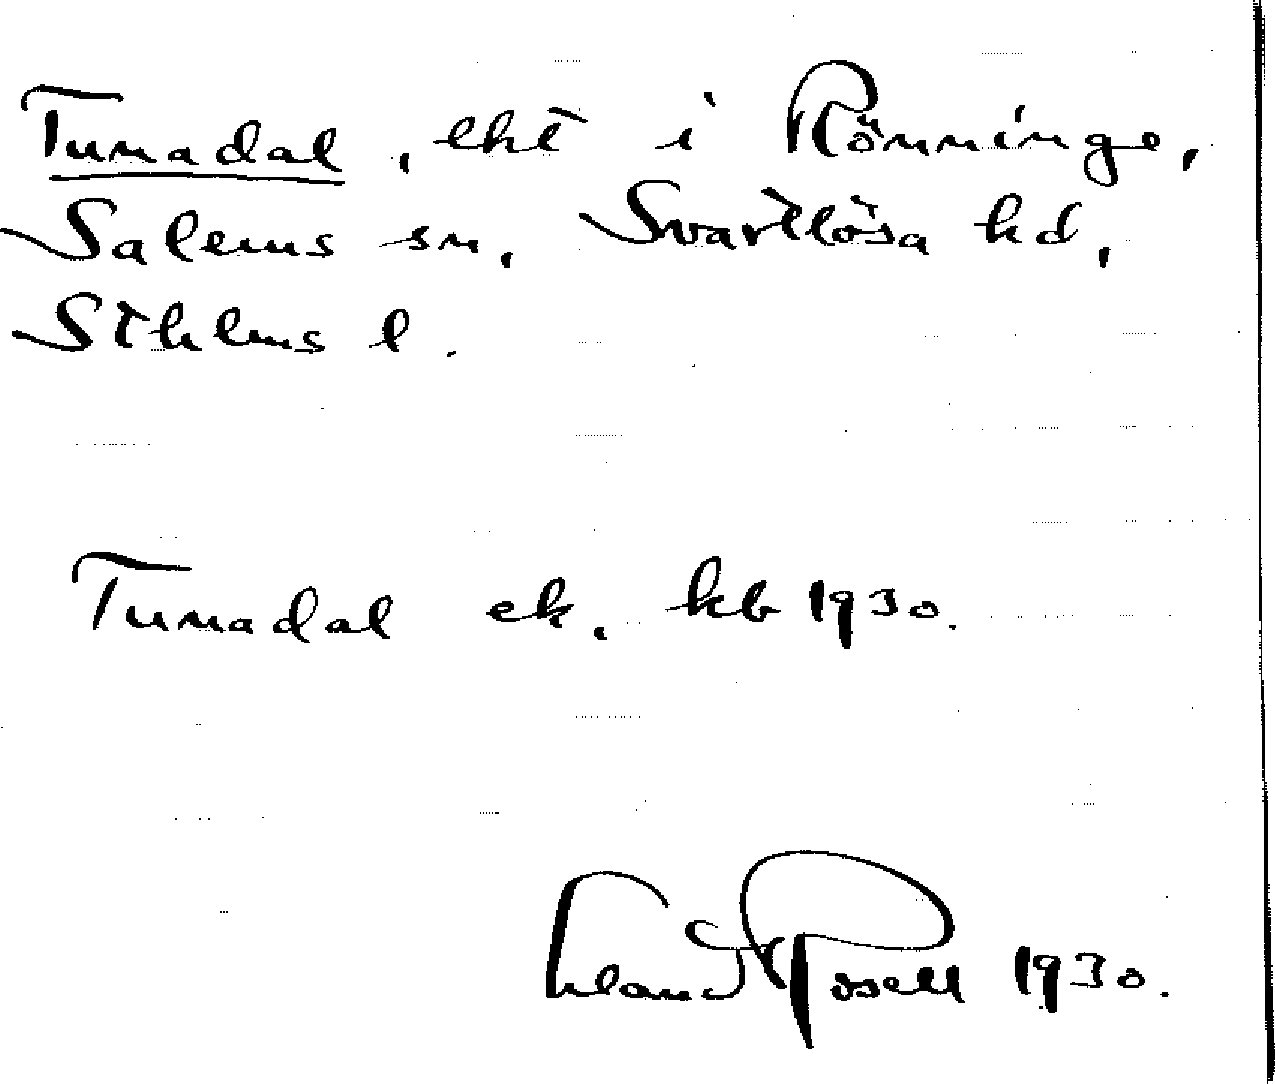 Tunadal, lht i Rönninge,
Salems sn, Svartlösa hd,
Sthlms l.
Tunadal ek. kb 1930.
Erland Rosell 1930.